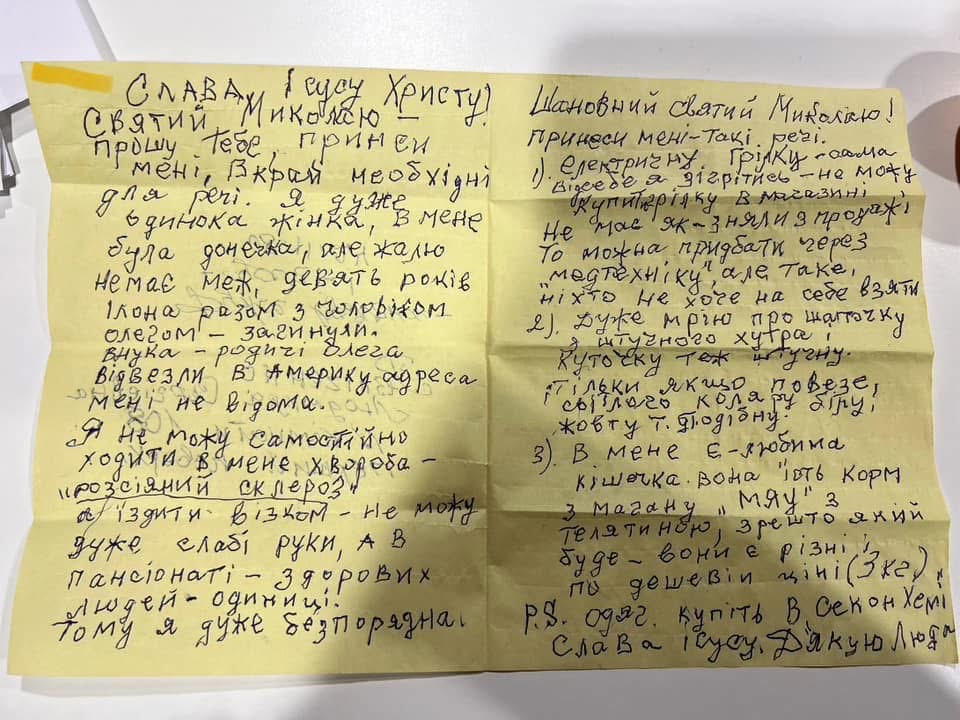 Слава Ісусу Христу!
Святий Миколаю —
прошу Тебе, принеси
мені, вкрай необхідні
для речі. Я дуже
одинока жінка, в мене
була донечка, але жалю
немає меж, дев'ять років
Ілона разом з чоловіком
Олегом — загинули.
внука — родичі Олега
відвезли в Америку адреса
мені не відома.
Я не можу самостійно
ходити в мене хвороба —
"розсіяний склероз"
а їздити візком — не можу
дуже слабі руки, а в
пансіонаті — здорових
людей — одиниці.
Тому я дуже безпорядна.
Шановний святий Миколаю!
принеси мені — такі речі.
1). електричну грілку — сама
від себе я зігрітись — не можу
купити грілку в магазині
не має як — зняли з продажі
то можна придбати через
"медтехніку", але таке,
ніхто не хоче на себе взяти
2). Дуже мрію про шапочку
з штучного хутра і
курточку теж штучну.
тільки якщо повезе,
світлого коляру біру,
жовту т. подібну.
3). В мене є — любима
кішечка. вона їсть корм
з магану "Мяу" з
телятиною, зрештою який
буде — вони є різні і
по дешевій ціні (3 кг)
P.S. одяг. купіть в секон хемі
Слава Ісусу. Дякую Люда